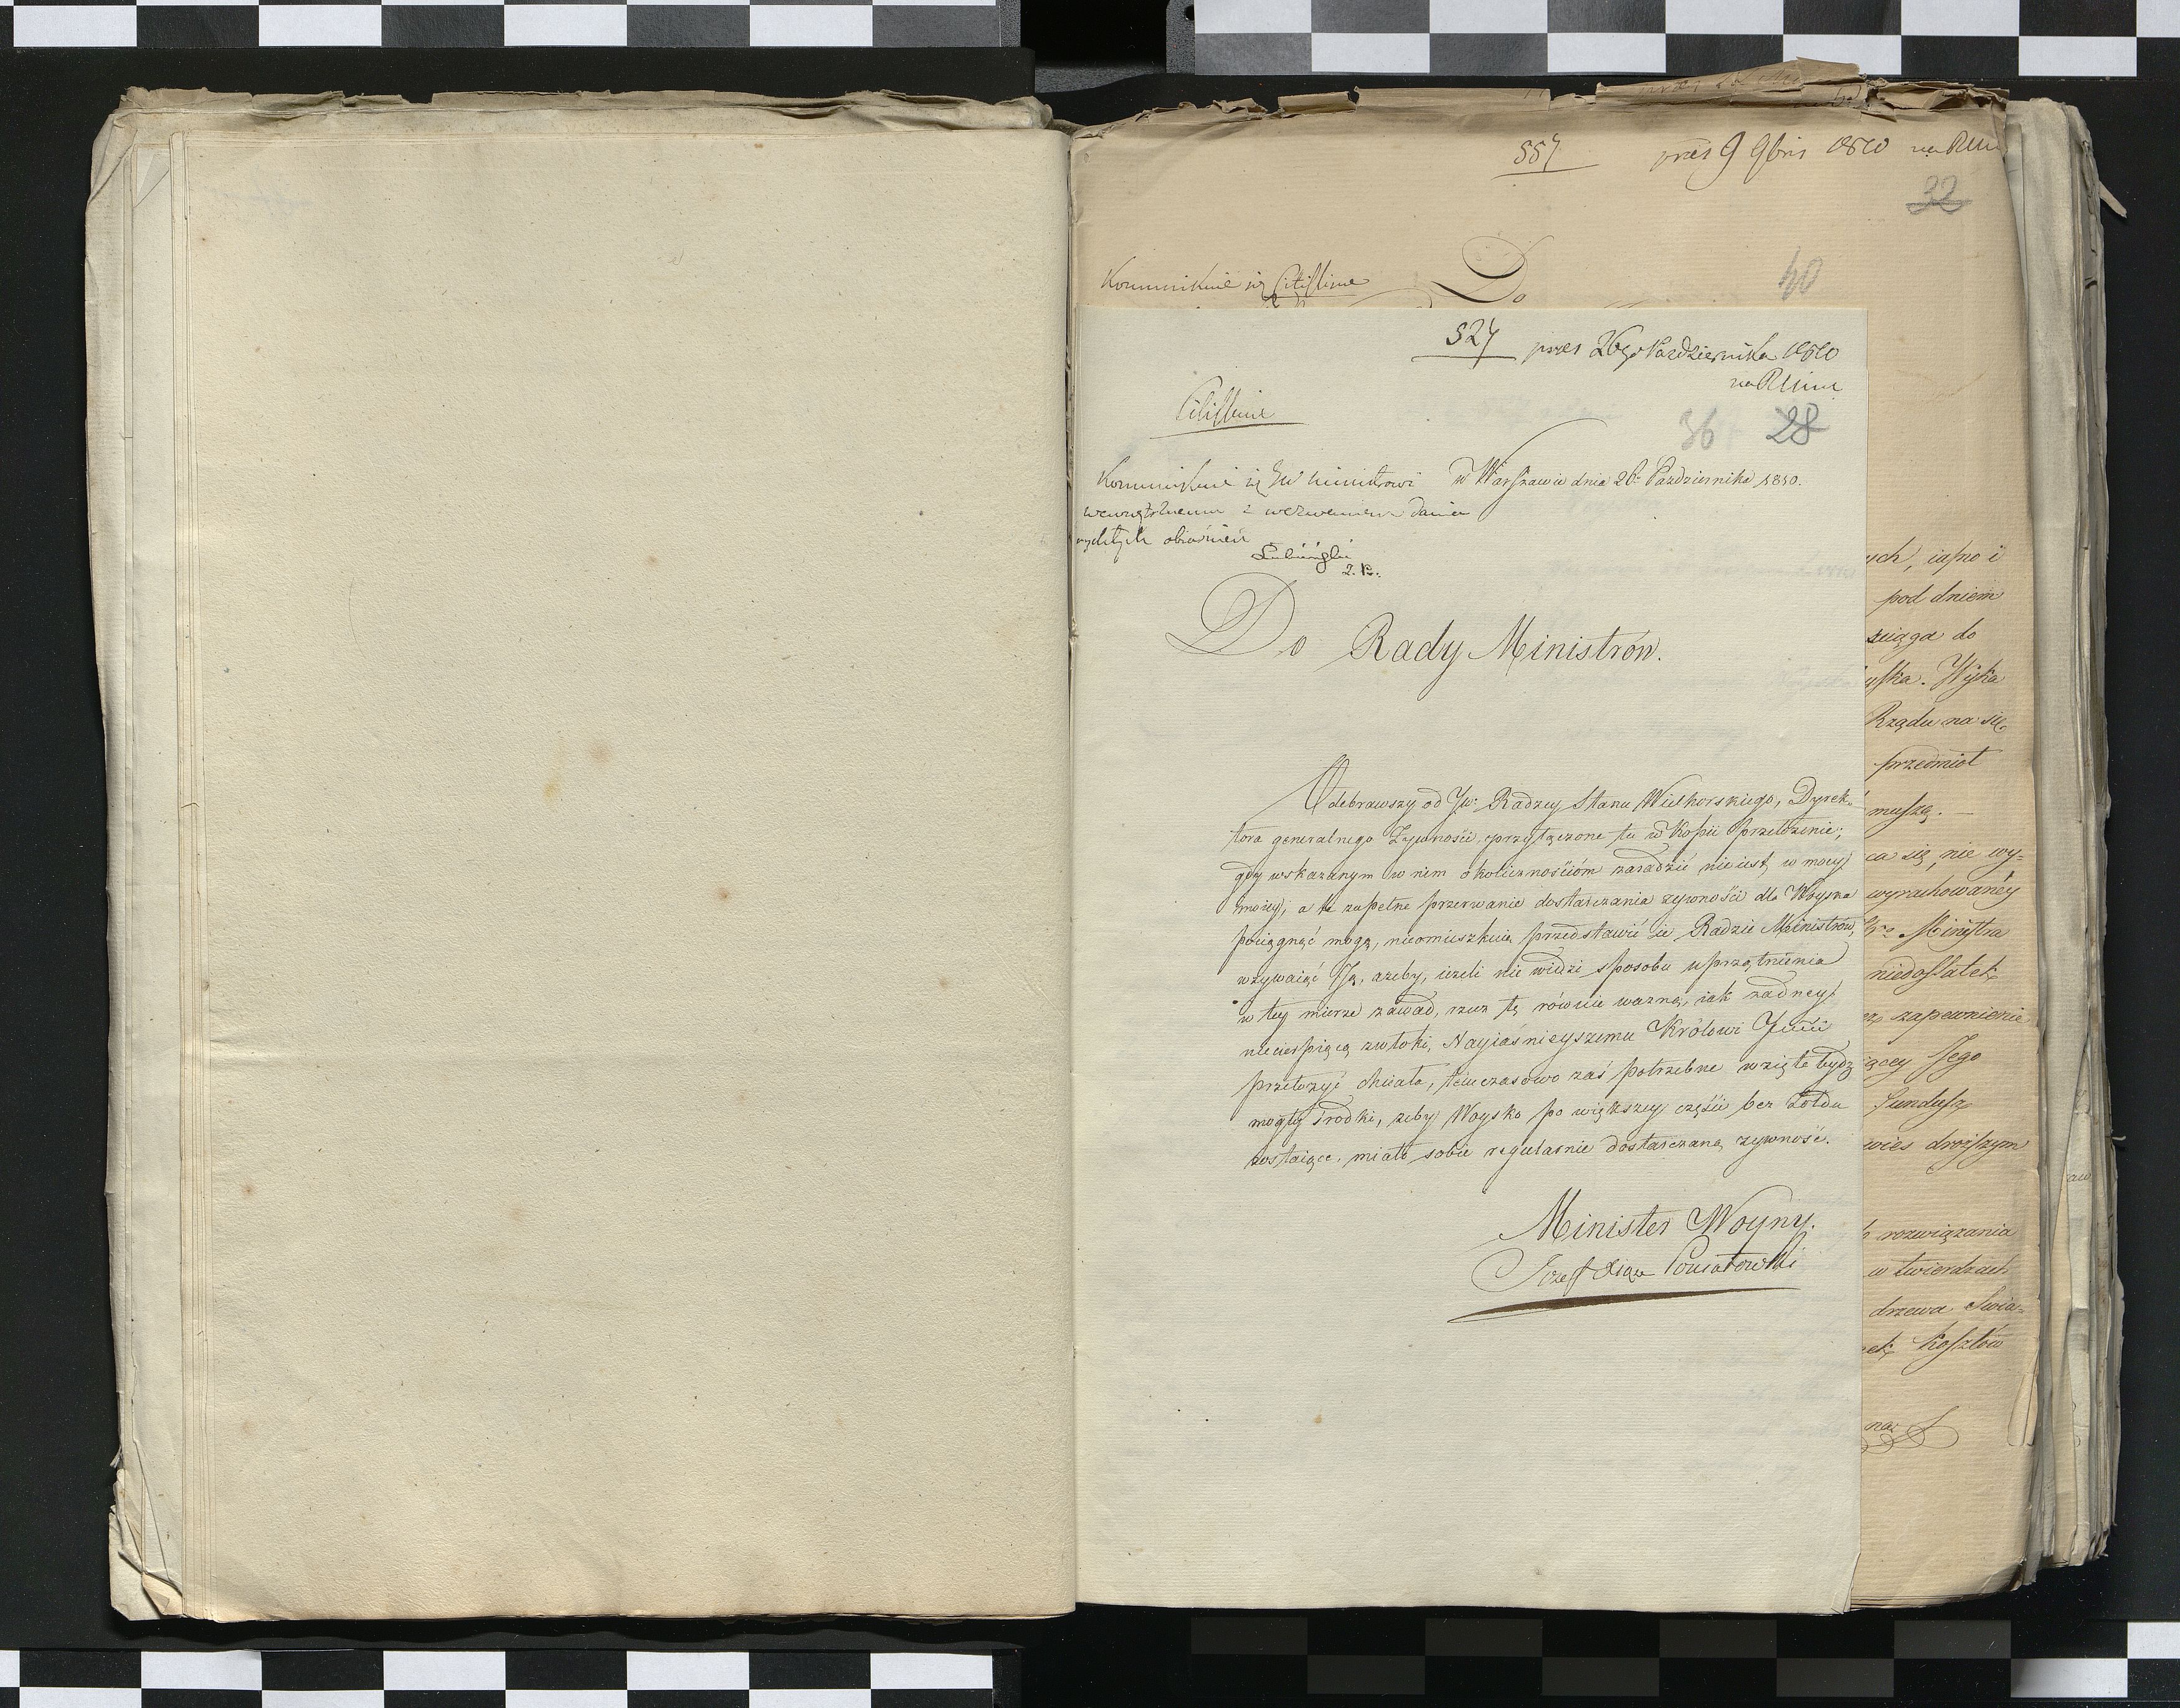 557 pres 9 9bris 1810 na RMin
32
40
Kommunikuie się Citissime
Do
527 pres 26go Października 1810
na RMin
Citissime
36 28
w Warszawie dnia 26. Października 1810.
Kommunikuie się JW Ministrowi
wewnętrznemu z wezwaniem dania
rychłych obiaśnień
Łubieński
Do Rady Ministrów.
Odebrawszy od JW. Radzcy Stanu Wielhorskiego, Dyrek-
tora generalnego Żywności, przyłączone tu w Kopii przełożenie;
gdy wskazanym w nim okolicznościom zaradzić nie iest w mocy
moiey, a te zupełne przerwanie dostarczania żywności dla Woyska
pociągnąć mogą, nieomieszkuię przedstawić ie Radzie Ministrów,
wzywaiąć Ją, ażeby, ieżeli nie widzi sposobu uprzątnienia
w tey mierze zawad, rzecz tę równie ważną, iak żadney
niecierpiącą zwłoki, Nayiaśnieyszemu Królowi Jmci
przełożyć chciała, tymczasowo zaś potrzebne wzięte bydź
mogły środki, żeby Woysko po większey części bez Żołdu
zostaiące, miało sobie regularnie dostarczaną żywność.
Minister Woyny.
Józef Xiąże Poniatowski
ych, iasno i
pod dniem
ściąga do
yska. Wyka
Rządu na się
przedmiot
muszę.
ca się, nie wy-
wyrachowaney
Ministra
niedostatek
zapewnienie
iący Jego
Fundusz
droższym
rozwiązania
w twierdzach
drzewa Świa-
Kosztów